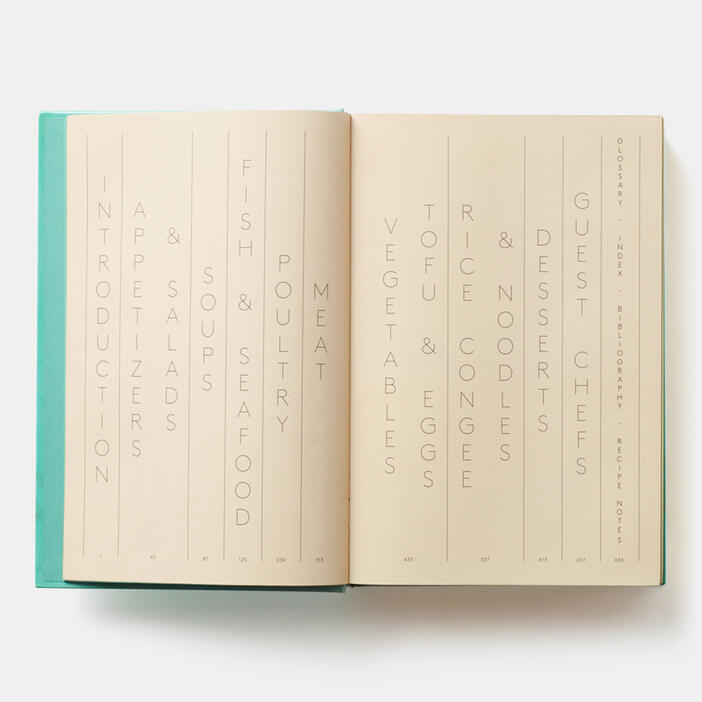 INTRODUCTION
7
APPETIZERS
& SALADS
43
SOUPS
87
FISH & SEAFOOD
125
POULTRY
239
MEAT
313
VEGETABLES
TOFU & EGGS
435
RICE CONGEE
& NOODLES
537
DESSERTS
613
GUEST CHEFS
657
GLOSSARY - INDEX - BIBLIOGRAPHY - RECIPE NOTES
685